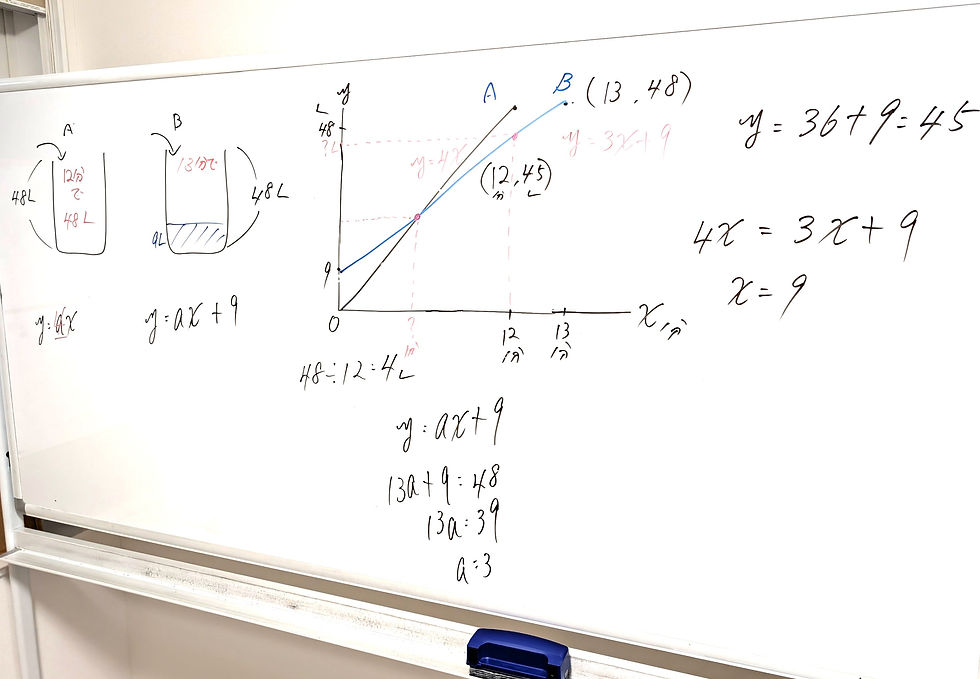 A
12分
で
48L
48L
y=ax
B
13分で
48L
9L
y=ax+9
y
L
48
?L
9
O
A
B
(13,48)
y=4x
y=3x+9
(12,45)
分 L
?
分
12
分
13
分
x分
48÷12=4L
y=ax+9
13a+9=48
13a=39
a=3
y=36+9=45
4x=3x+9
x=9